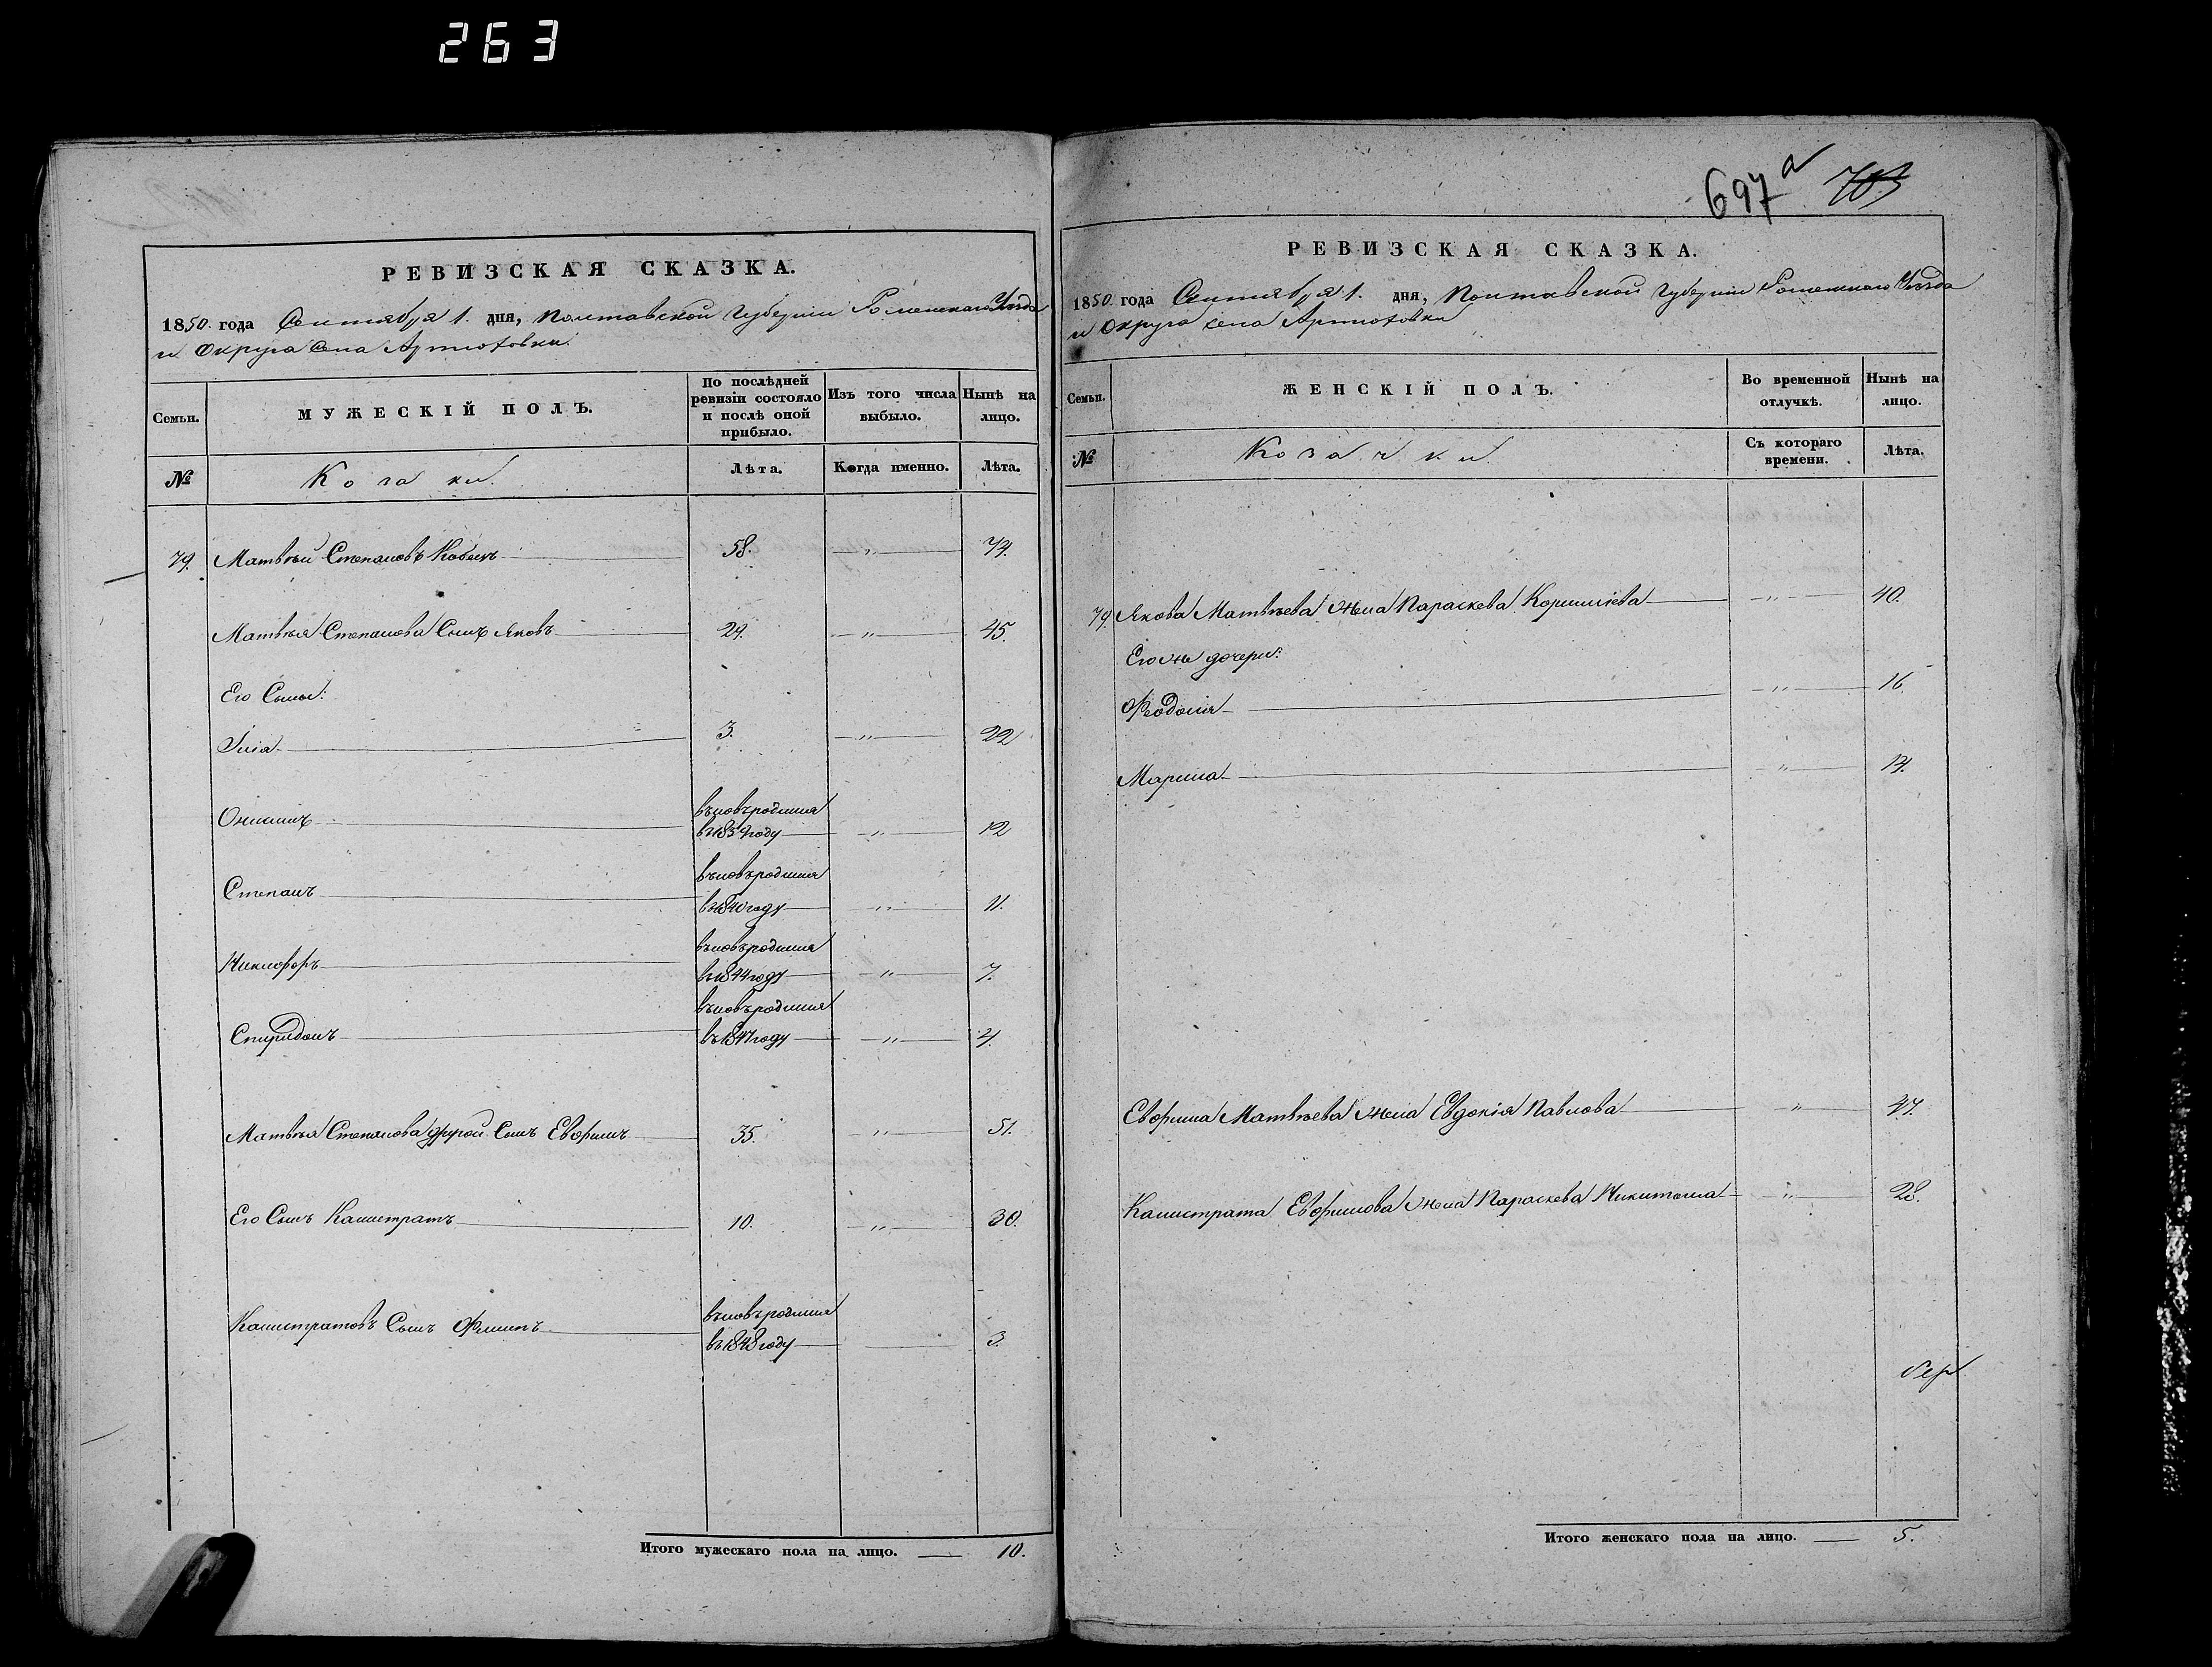 263
РЕВИЗСКАЯ СКАЗКА.
1850. года Сентября 1. дня, Полтавской Губерніи Роменскаго Уѣзда
и Округа Села Артюховки.
Семьи. МУЖЕСКІЙ ПОЛЪ. По послѣдней ревизіи состояло и послѣ оной прибыло. Изъ того числа выбыло. Нынѣ на лицо.
№ Козаки. Лѣта. Когда именно. Лѣта.
79. Матвѣй Степановъ 58. — " — 74.
Матвѣя Степанова Сынъ Яковъ 29. — " — 45.
Его Сыны:
Илія 3. — " — 22
Онисимъ въновъродился
въ1839году — " — 12
Степанъ въновъродился
въ1840году — " — 11.
Никифоръ въновъродился
въ1844году — " — 7.
Спиридонъ въновъродился
въ1847году — " — 4.
Матвѣя Степанова другой Сынъ Евфимъ 35. " 51.
Его Сынъ Калистратъ 10. " 30.
Калистратовъ Сынъ Филипъ въновъродился
въ1848году — 3.
Итого мужескаго пола на лицо. — 10.
697а 703
РЕВИЗСКАЯ СКАЗКА.
1850. года Сентября 1. дня, Полтавской Губерніи Роменскаго Уѣзда
и Округа села Артюховки
Семьи. ЖЕНСКІЙ ПОЛЪ. Во временной отлучкѣ. Нынѣ на лицо.
№ Козачки. Съ котораго времени. Лѣта.
79. Якова Матвѣева жена Параскева Корнилієва — " — 40.
Его же дочери:
Феодосія — " — 16.
Марина — " — 14.
Евфима Матвѣева жена Евдокія Павлова — " — 47.
Калистрата Евфимова жена Параскева Никитина — " — 28.
Итого женскаго пола на лицо. — 5.